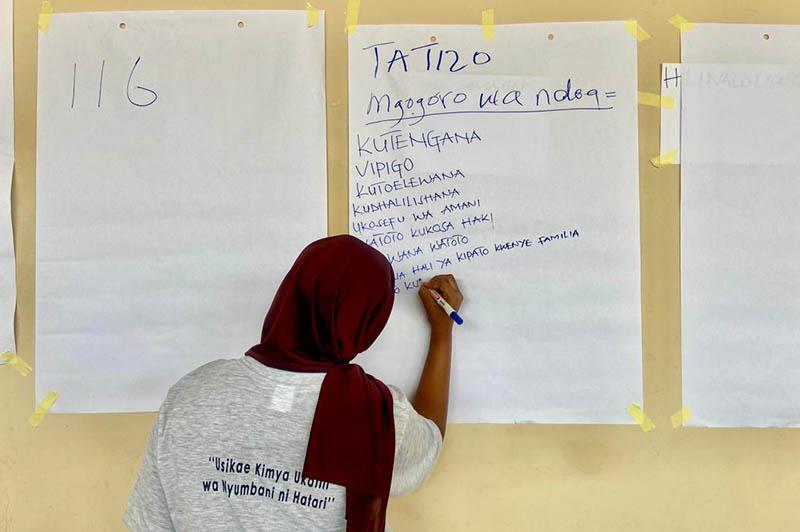 116
TATIZO
Mgogoro wa ndoa =
KUTENGANA
VIPIGO
KUTOELEWANA
KUDHALILISHANA
UKOSEFU WA AMANI
WATOTO KUKOSA HAKI
WATOTO
HALI YA KIPATO KWENYE FAMILIA
H
"Usikae Kimya Ukatili
wa Nyumbani ni Hatari"